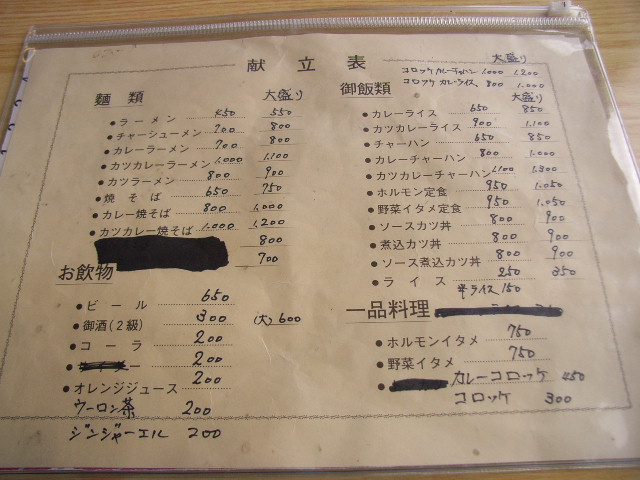 献立表
麺類 大盛り
●ラーメン 450 550
●チャーシューメン 700 800
●カレーラーメン 700 800
●カツカレーラーメン 1.000 1.100
●カツラーメン 800 900
●焼そば 650 750
●カレー焼そば 800 1.000
●カツカレー焼そば 1.000 1.200
800
700
お飲物
●ビール 650
●御酒(2級) 300 (大)600
●コーラ 200
● ー 200
●オレンジジュース 200
ウーロン茶 200
ジンジャーエル 200
大盛り
コロッケカレーチャーハン 1.000 1.200
コロッケカレーライス 800 1.000
御飯類 大盛り
●カレーライス 650 850
●カツカレーライス 900 1.100
●チャーハン 650 850
●カレーチャーハン 800 1.000
●カツカレーチャーハン 1.100 1.300
●ホルモン定食 950 1.050
●野菜イタメ定食 950 1.050
●ソースカツ丼 800 900
●煮込カツ丼 800 900
●ソース煮込カツ丼 800 900
●ライス 250 350
半ライス150
一品料理
●ホルモンイタメ 750
●野菜イタメ 750
● カレーコロッケ 450
コロッケ 300